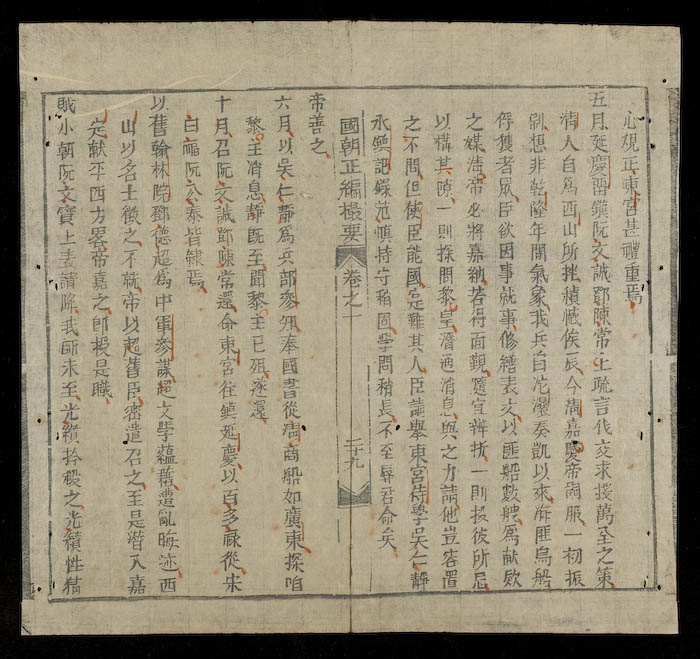 心規正東宮甚禮重焉
五月延慶留鎮阮文誠鄧陳常上疏言伐交求援萬全之策
清人自爲西山所挫積憾俟辰今清嘉慶帝嗣服一初振
剔想非乾隆年間氣象我兵自沱㶞奏凱以來海匪烏船
俘獲者眾臣欲因事就事修繕表文以匪船數艘爲献欵
之媒清帝必將嘉納若得面覲隨宜辨折一則投彼所忌
以構其隙一則探問黎皇潛通消息與之力請他豈容置
之不問但使臣能國寔難其人臣請舉東宮侍學吳仁靜
永鎮記錄范慎持守稍固學問稍長不至辱君命矣
國朝正編撮要 卷之一 二十九
帝善之
六月以吳仁靜爲兵部參知奉國書從清商船如廣東探咱
黎主消息靜旣至聞黎主已殂遂還
十月召阮文誠鄧陳常還命東宮往鎮延慶以百多祿從宋
曰福阮公泰皆隸焉
以舊翰林院鄧德超爲中軍參謀超文學蘊藉遭亂晦迹西
山以名士徵之不就帝以超舊臣密遣召之至是潛入嘉
定献平西方畧帝嘉之卽授是職
賊小朝阮文寶上表請降我師未至光纘拾殺之光纘性猜